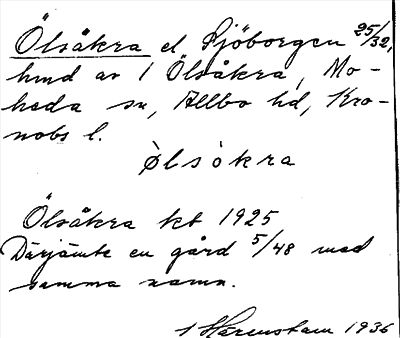 Ölsåkra el Sjöborgen 25/32,
hmd av 1 Ölsåkra, Mo-
heda sn, Allbo hd, Kro-
nobs l.
òlsòkra
Ölsåkra kb 1925
Därjämte en gård 5/48 med
samma namn.
1 Härenstam 1936